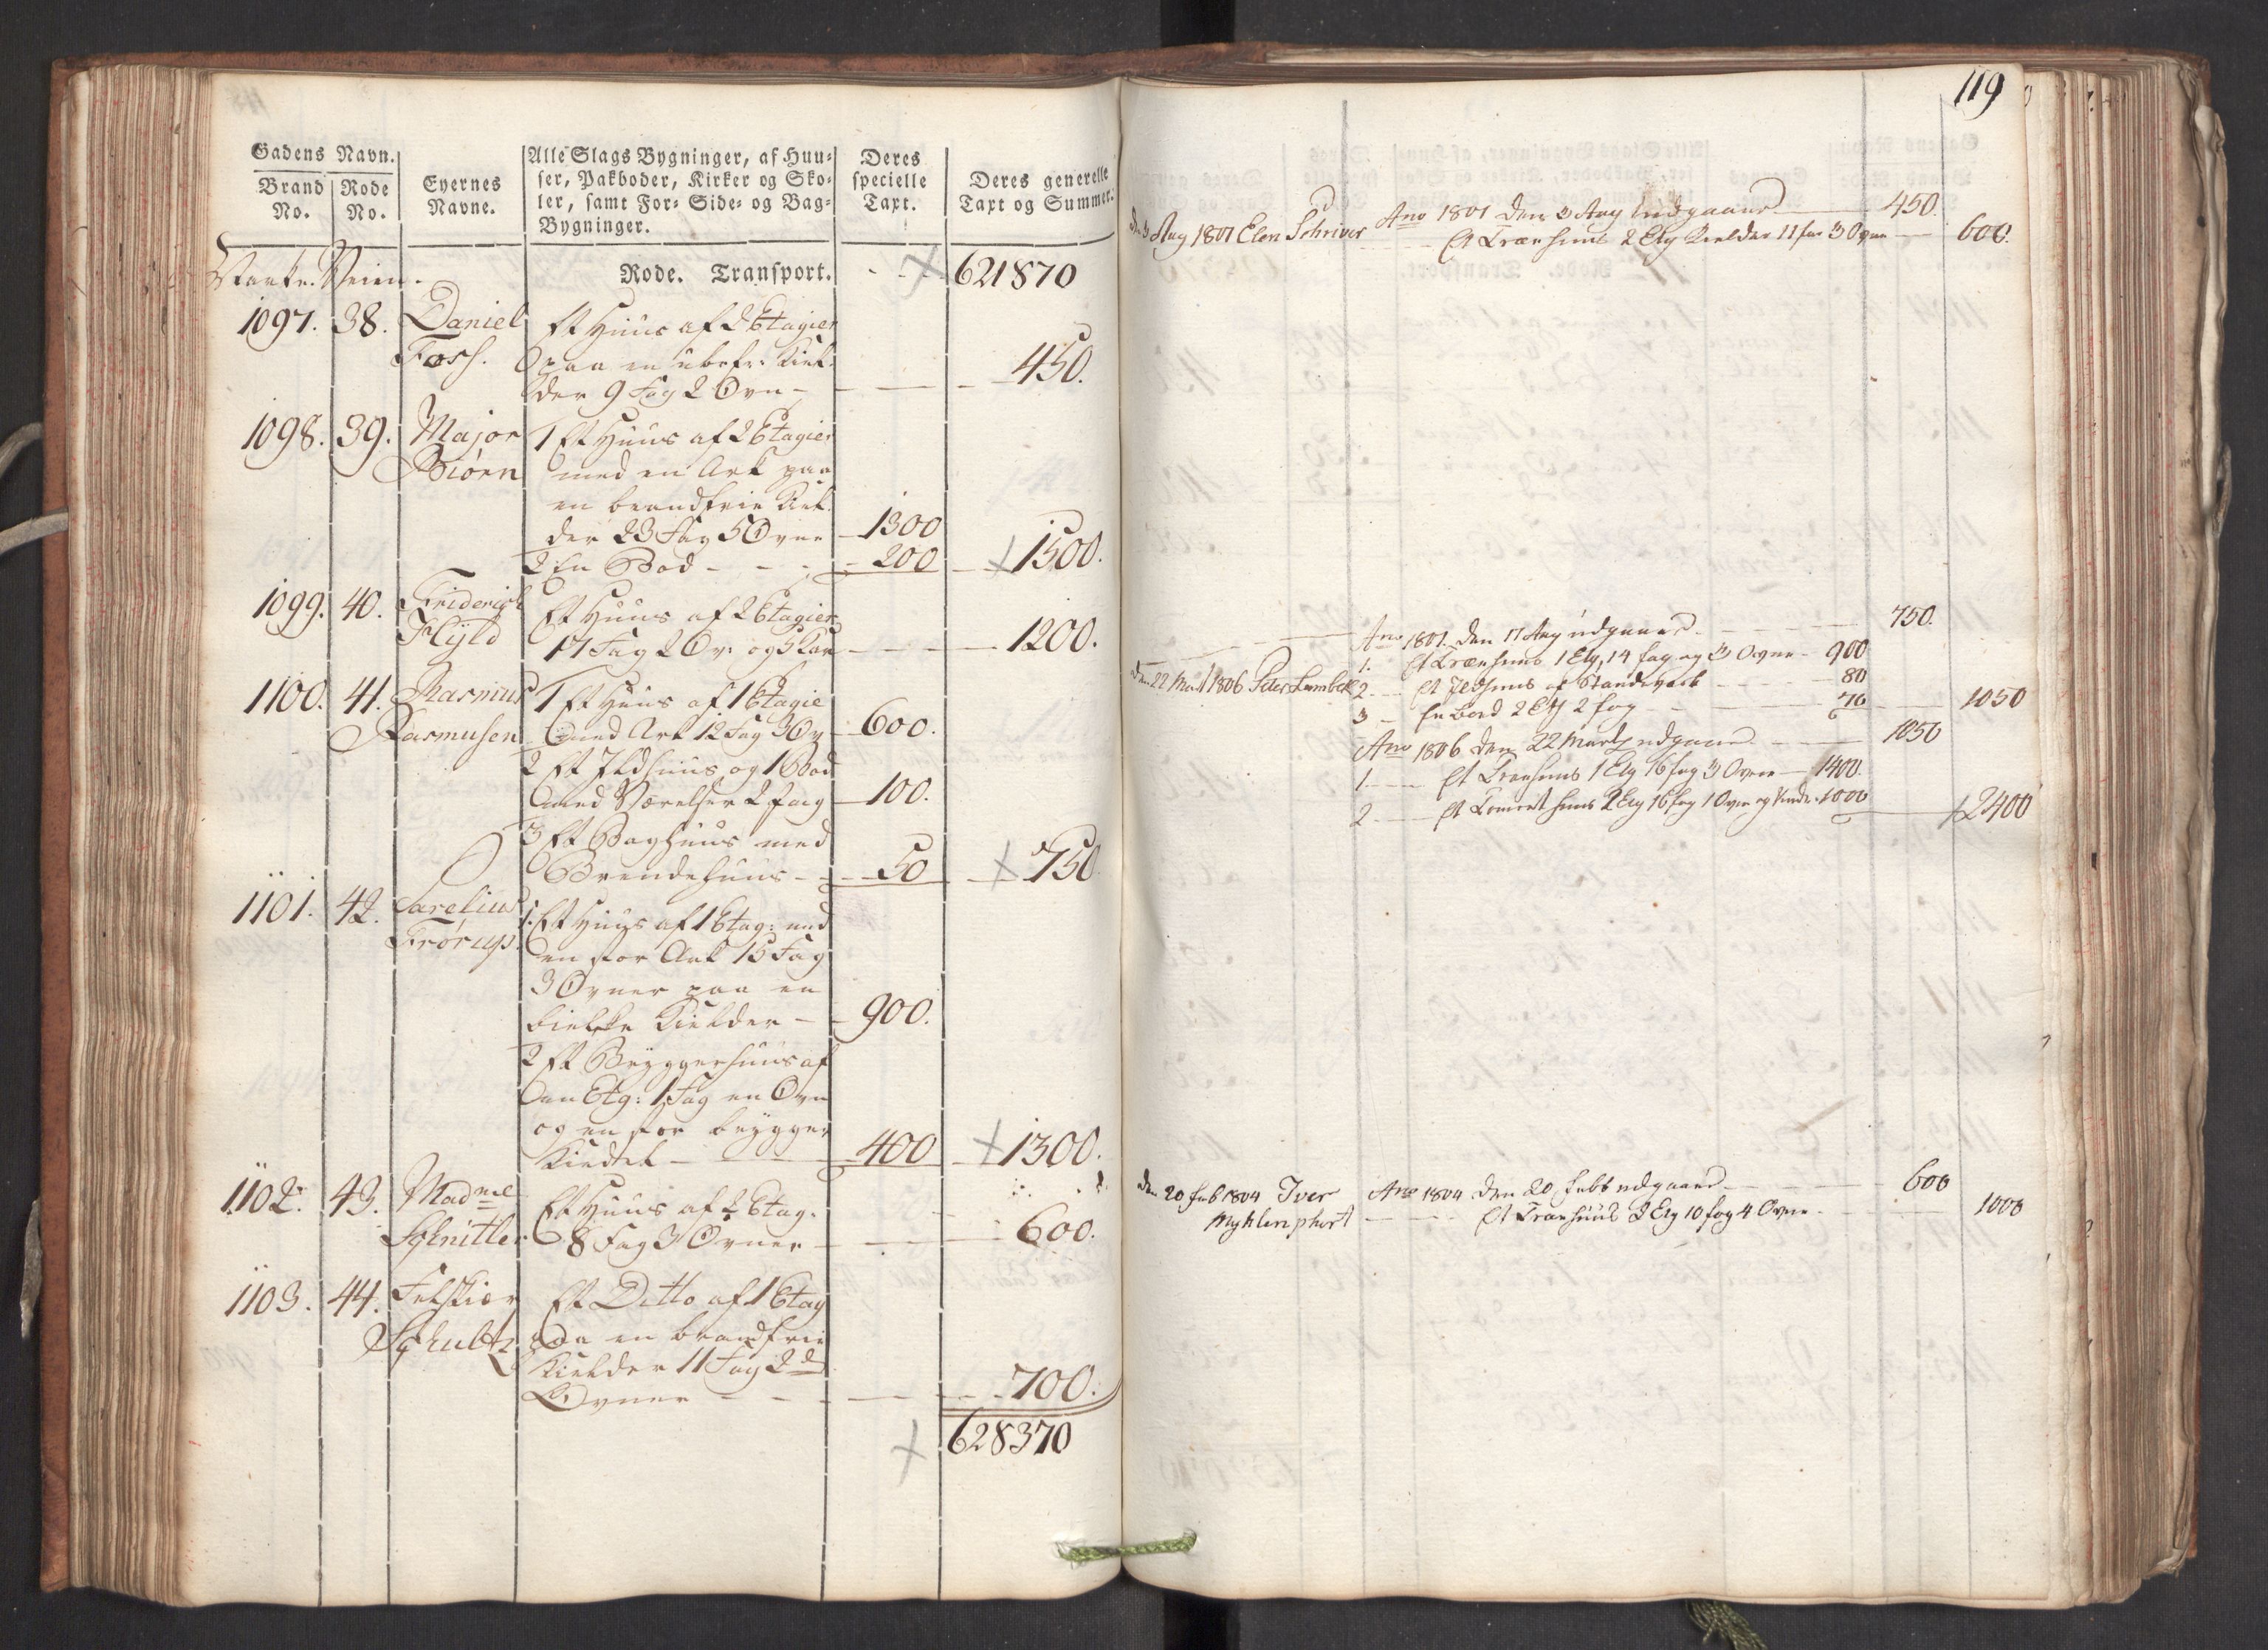 Gadens Navn.
Brand No.
Rode No.
Eyernes Navne.
Alle Slags Bygninger, af Huu-
ser, Pakboder, Kirker og Sko-
ler, samt For- Side- og Bag-
Bygninger.
Deres specielle Taxt.
Deres generelle Taxt og Summer.
Veien.
Rode. Transport. 621870
1097. 38. Daniel Et Huus af 2 Etagier
Foss. paa en ubefr: Kiel-
der 9 Fag 2 Ovn 450.
1098. 39. Major 1 Et Huus af 2 Etagier
Biørn med en Ark paa
en brandfrie Kiel-
der 23 Fag 5 Ovne 1300
2 En Bod 200 1500.
1099. 40. Friderich Et Huus af 2 Etagier
Flyld 17 Fag 2 Ov: og 1200.
1100. 41. Rasmus 1 Et Huus af 1 Etagie
Rasmusen med Ark 12 Fag 3 Ov 600.
2 Et Ildhuus og 1 Bod
med Værelser 2 fag 100.
3 Et Baghuus med
Brendehuus 50 750
1101. 42. Sarelius 1. Et Huus af 1 Etag: med
Frørup. en stor Ark 15 Fag
3 Ovner paa en
bielke Kielder 900.
2 Et Bryggerhuus af
een Etg: 1 Fag en Ovn
og en stor brygger
Kiedel 400 1300.
1102. 43. Madme Et Huus af 2 Etag:
Schnitler 8 Fag 3 Ovner 600.
1103. 44. Feltskiær Et Ditto af 1 Etag
Schultz paa en brandfrie
Kielder 11 Fag 2de
Ovner 700.
628370
119
d: 3 Aug 1801 Elen Schriver Ano 1801 den 3 Aug udgaaer 450.
Et Træehuus 2 Etg Kielder 11 fag 3 Ovne 600.
Ano 1801. den 17 Aug udgaaer 750.
1. Et Træehuus 1 Etg, 14 fag og 3 Ovne 900
den 22 Mart 1806 Peter Lumbek 2 Et Ildhuus af Standeverk 80
3 En Bod 2 Etg 2 fag 70 1050
Ano 1806 den 22 Marty udgaaer 1050
1 Et Træehuus 1 Etg 16 fag 3 Ovne 1400.
2 Et Tømret huus 2 Etg 16 fag 1 Ovn og 1000 2400
den 20 feb 1804 Iver Ano 1804 den 20 febr udgaaer 600
Myhlenphort Et Træehuus 2 Etg 10 fag 4 Ovne 1000